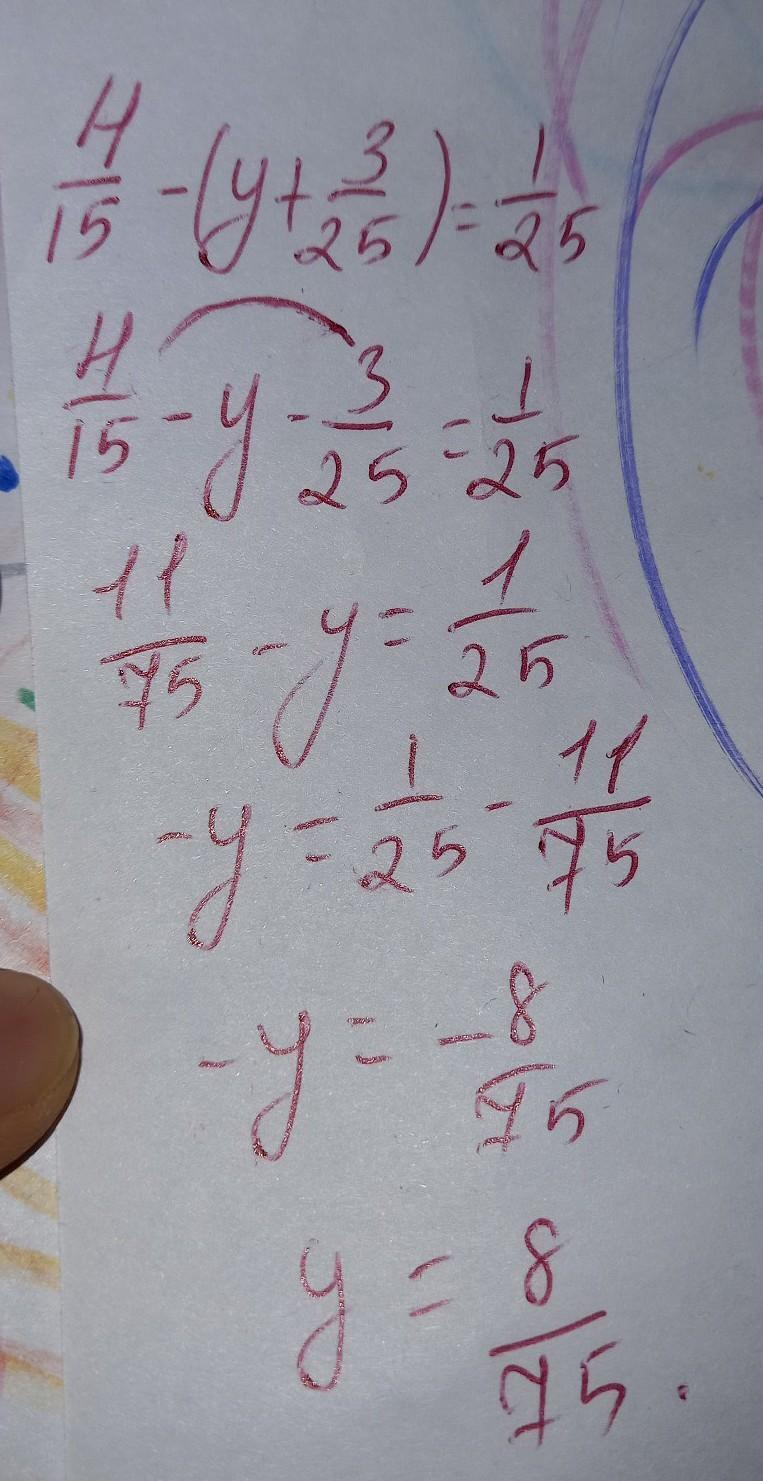 4/15 - (y + 3/25) = 1/25
4/15 - y - 3/25 = 1/25
11/75 - y = 1/25
-y = 1/25 - 11/75
-y = -8/75
y = 8/75.